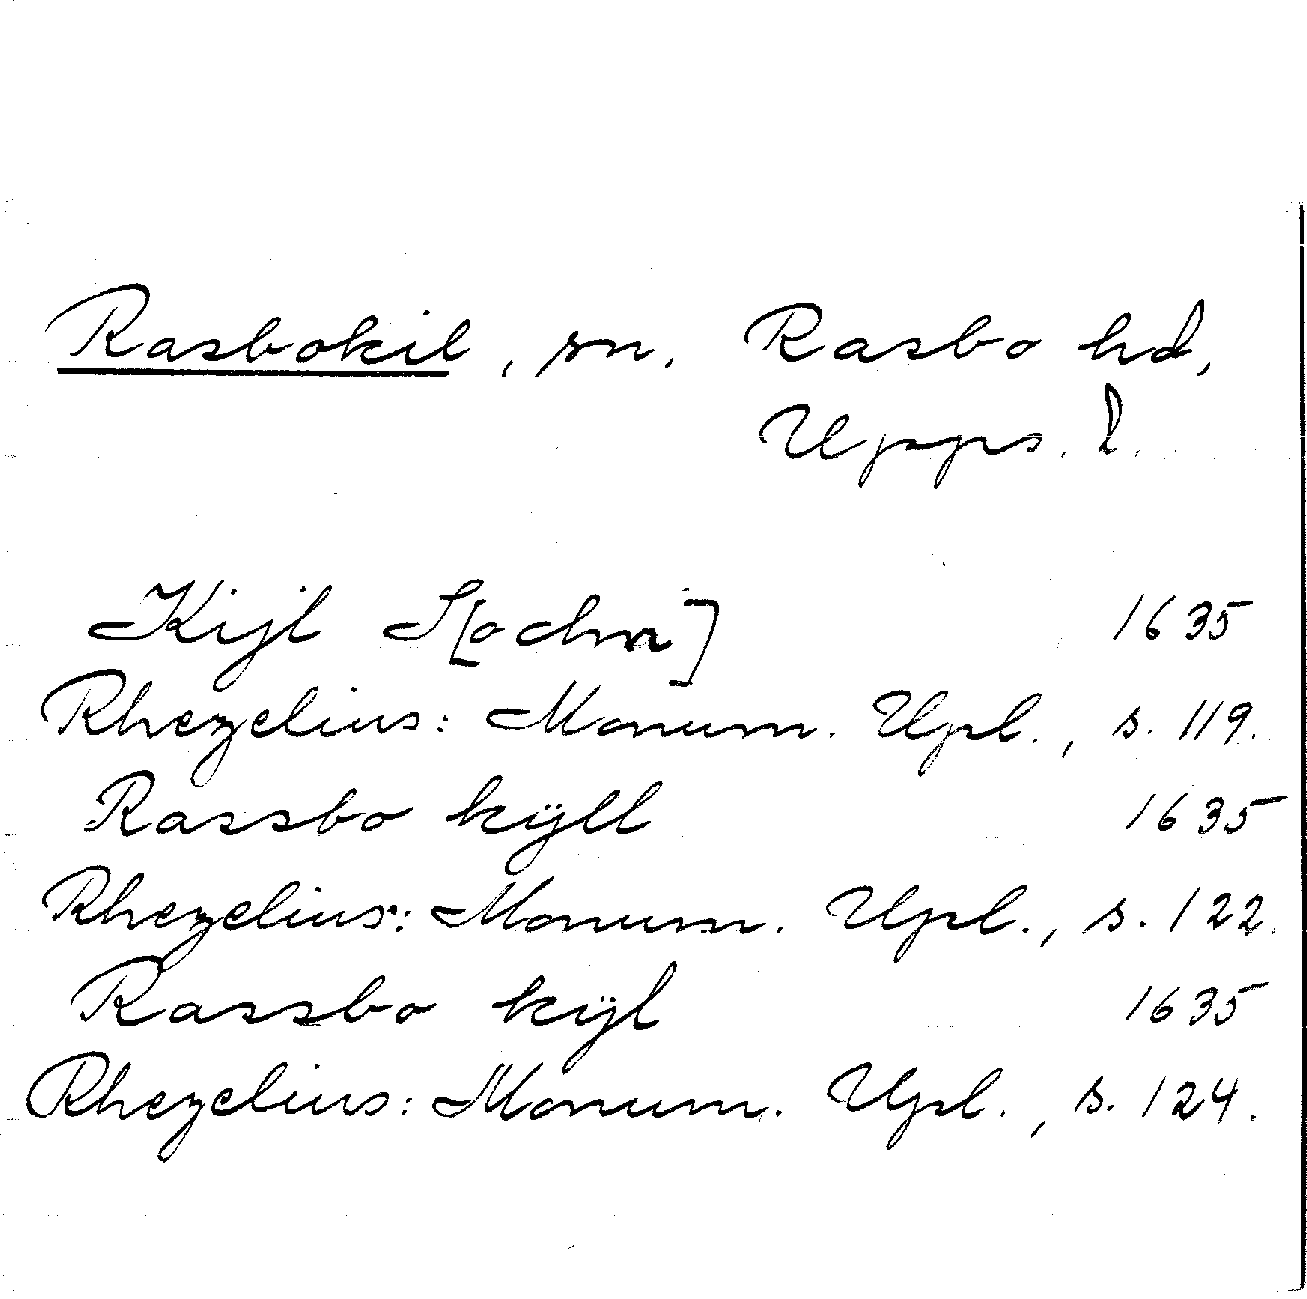 Rasbokil, sn, Rasbo hd,
Upps. l.
Kijl S[ochn] 1635
Rhezelius: Monum. Upl., s. 119.
Rassbo kÿll 1635
Rhezelius: Monum. Upl., s. 122.
Rassbo kijl 1635
Rhezelius: Monum. Upl., s. 124.